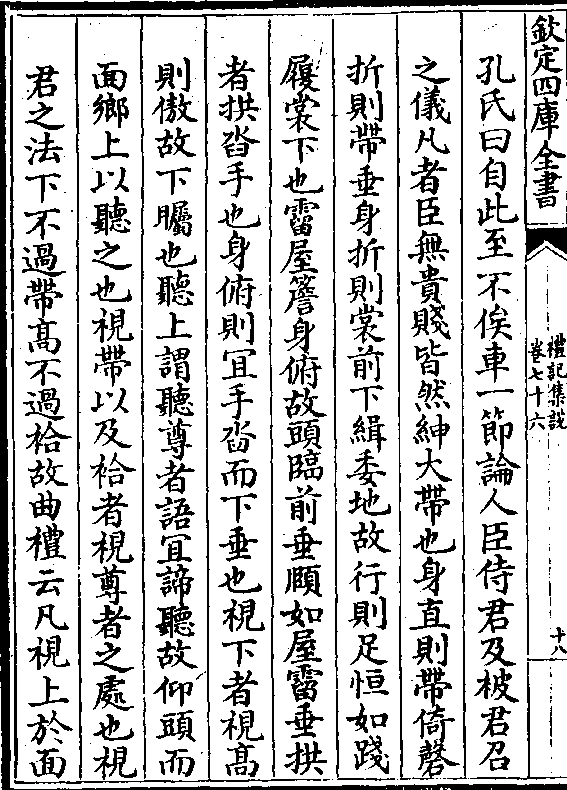 欽定四庫全書
禮記集說
卷七十六
十八
孔氏曰自此至不俟車一節論人臣侍君及被君召
之儀凡者臣無貴賤皆然紳大帶也身直則帶倚磬
折則帶垂身折則裳前下緝委地故行則足恒如踐
履裳下也霤屋簷身俯故頭臨前垂頤如屋霤垂拱
者拱沓手也身俯則冝手沓而下垂也視下者視高
則傲故下矚也聽上謂聽尊者語冝諦聽故仰頭而
面鄉上以聽之也視帶以及袷者視尊者之處也視
君之法下不過帶高不過袷故曲禮云凡視上於面